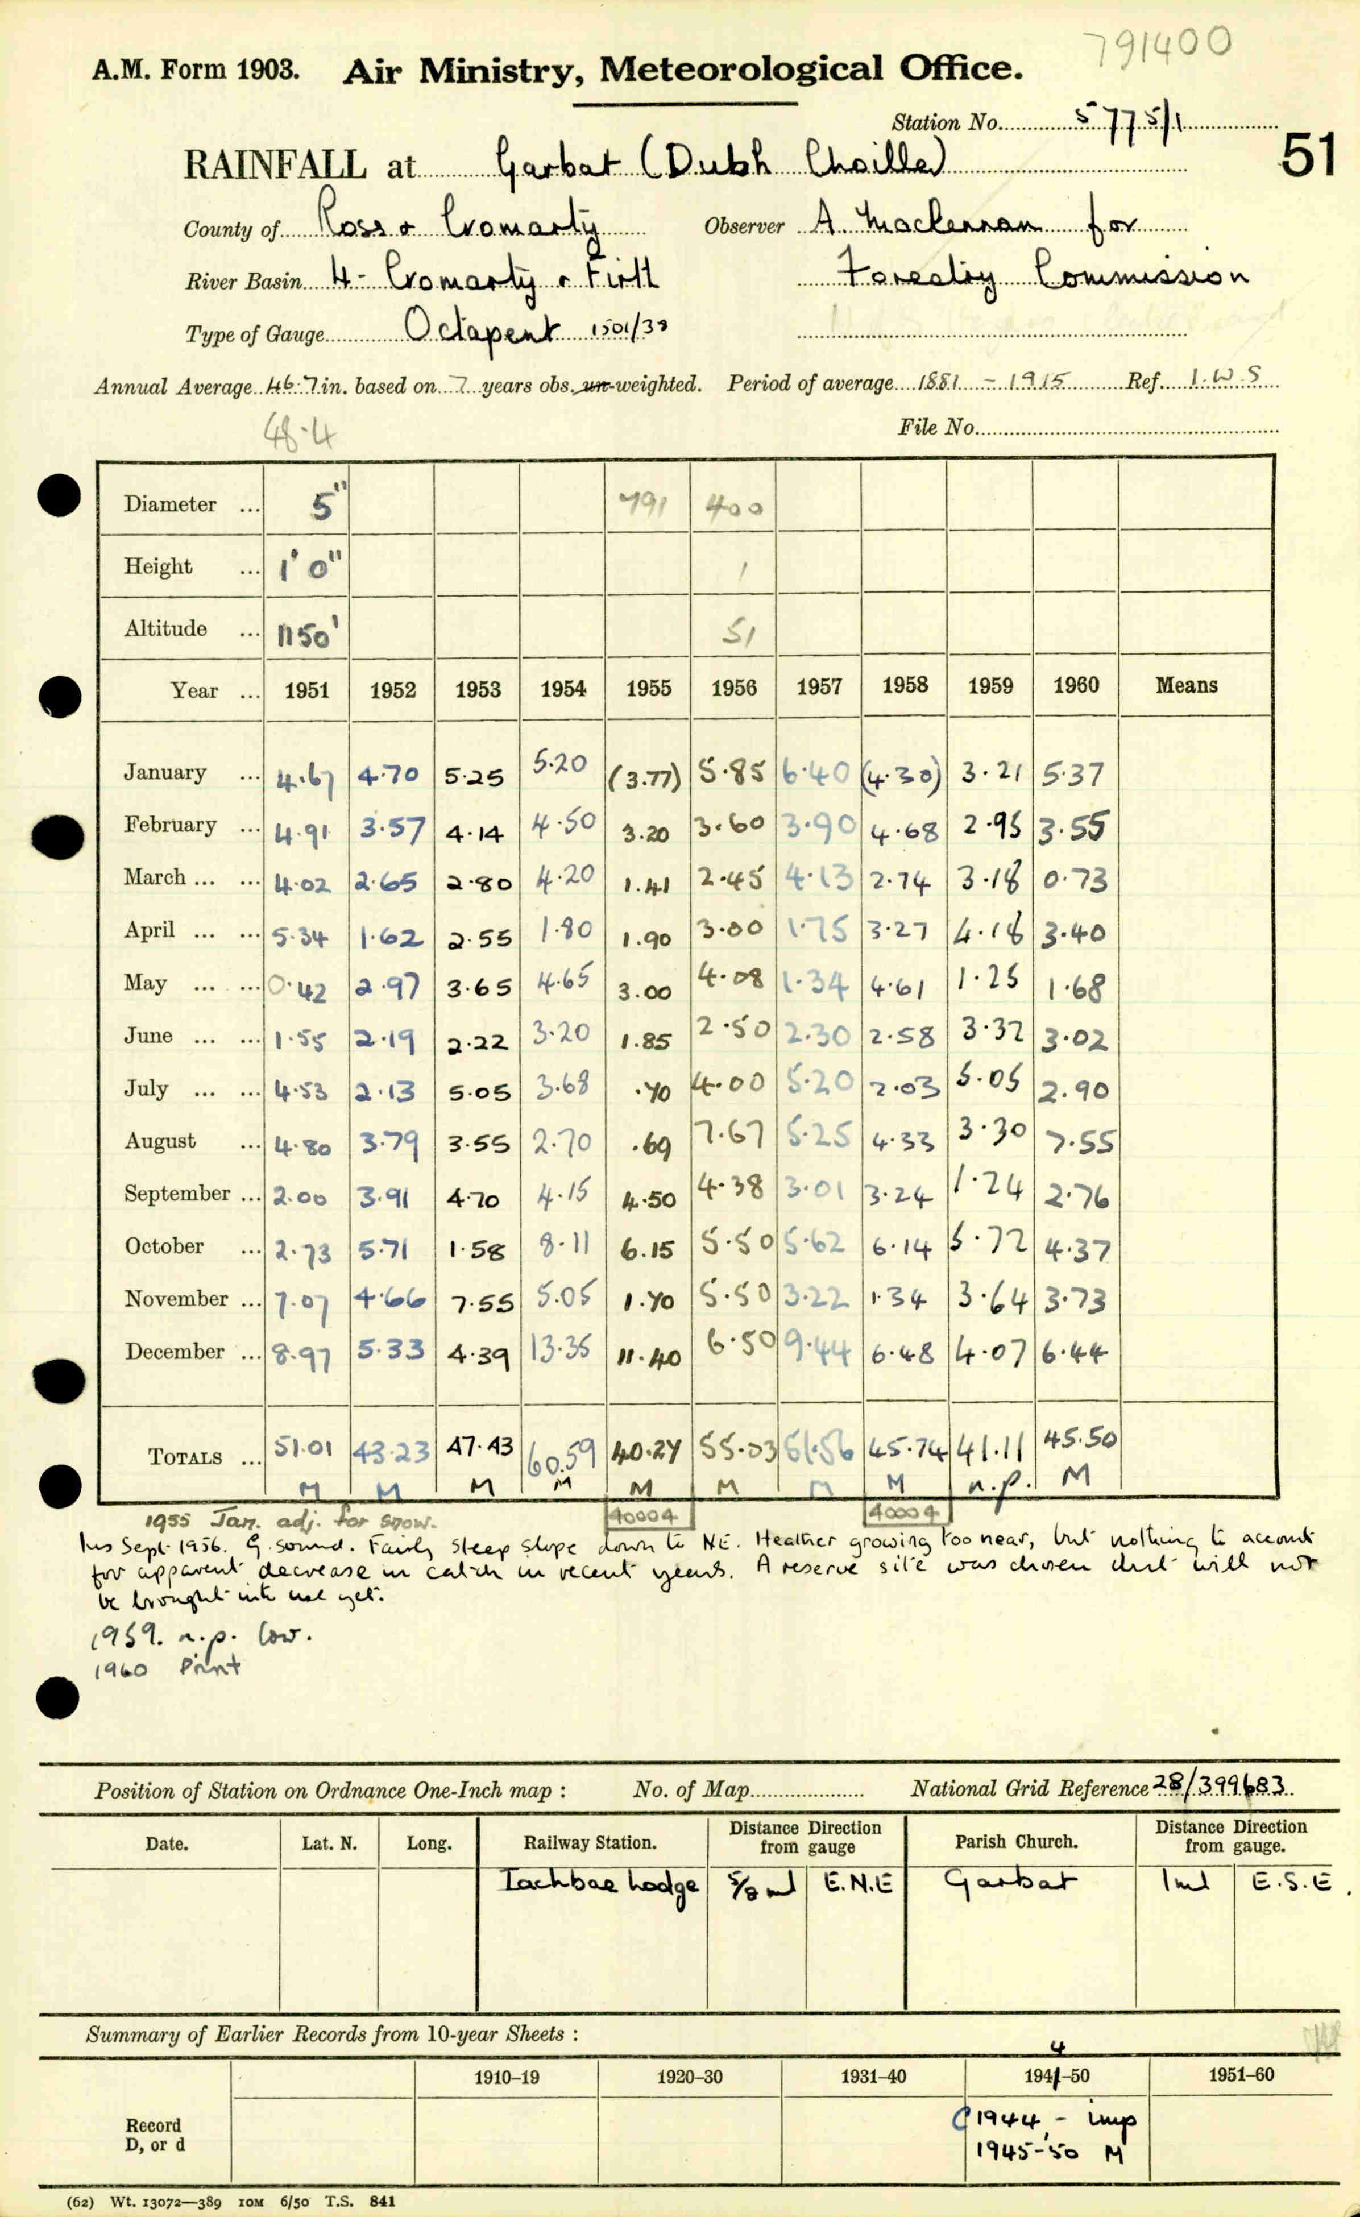 791400
A.M. Form 1903. Air Ministry, Meteorological Office.
Station No. 5775/1
51
RAINFALL at Garbat (Dubh Choille)
County of Ross & Cromarty Observer A. MacLennan for
River Basin 4- Cromarty & Firth Forestry Commission
Type of Gauge Octapent 1501/38
Annual Average 46.7 in. based on 7 years obs. un-weighted. Period of average 1881 - 1915 Ref. I.W.S
48.4 File No.
Diameter ... 5" 791 400
Height ... 1' 0" 1
Altitude ... 1150' 51
Year ... 1951 1952 1953 1954 1955 1956 1957 1958 1959 1960 Means
January ... 4.67 4.70 5.25 5.20 (3.77) 5.85 6.40 (4.30) 3.21 5.37
February ... 4.91 3.57 4.14 4.50 3.20 3.60 3.90 4.68 2.95 3.55
March ... ... 4.02 2.65 2.80 4.20 1.41 2.45 4.13 2.74 3.18 0.73
April ... ... 5.34 1.62 2.55 1.80 1.90 3.00 1.75 3.27 4.18 3.40
May ... ... 0.42 2.97 3.65 4.65 3.00 4.08 1.34 4.61 1.25 1.68
June ... ... 1.55 2.19 2.22 3.20 1.85 2.50 2.30 2.58 3.32 3.02
July ... ... 4.53 2.13 5.05 3.68 .70 4.00 5.20 2.03 5.05 2.90
August ... 4.80 3.79 3.55 2.70 .69 7.67 5.25 4.33 3.30 7.55
September ... 2.00 3.91 4.70 4.15 4.50 4.38 3.01 3.24 1.24 2.76
October ... 2.73 5.71 1.58 8.11 6.15 5.50 5.62 6.14 5.72 4.37
November ... 7.07 4.66 7.55 5.05 1.70 5.50 3.22 1.34 3.64 3.73
December ... 8.97 5.33 4.39 13.35 11.40 6.50 9.44 6.48 4.07 6.44
TOTALS ... 51.01 43.23 47.43 60.59 40.27 55.03 51.56 45.74 41.11 45.50
M M M M M M M M n.p. M
1955 Jan. adj. for snow. 40004 40004
Ins Sept 1956. G. sound. Fairly steep slope down to NE. Heather growing too near, but nothing to account
for apparent decrease in catch in recent years. A reserve site was chosen but will not
be brought into use yet.
1959. n.p. low.
1960 Print
Position of Station on Ordnance One-Inch map : No. of Map National Grid Reference 28/399683
Date. Lat. N. Long. Railway Station. Distance from Direction gauge Parish Church. Distance from Direction gauge.
Lodge 5/8 ml E.N.E Garbat 1 ml E.S.E.
Summary of Earlier Records from 10-year Sheets :
4
1910–19 1920–30 1931–40 1941–50 1951–60
Record
D, or d
1944 - imp
1945-50 M
(62) Wt. 13072—389 10M 6/50 T.S. 841